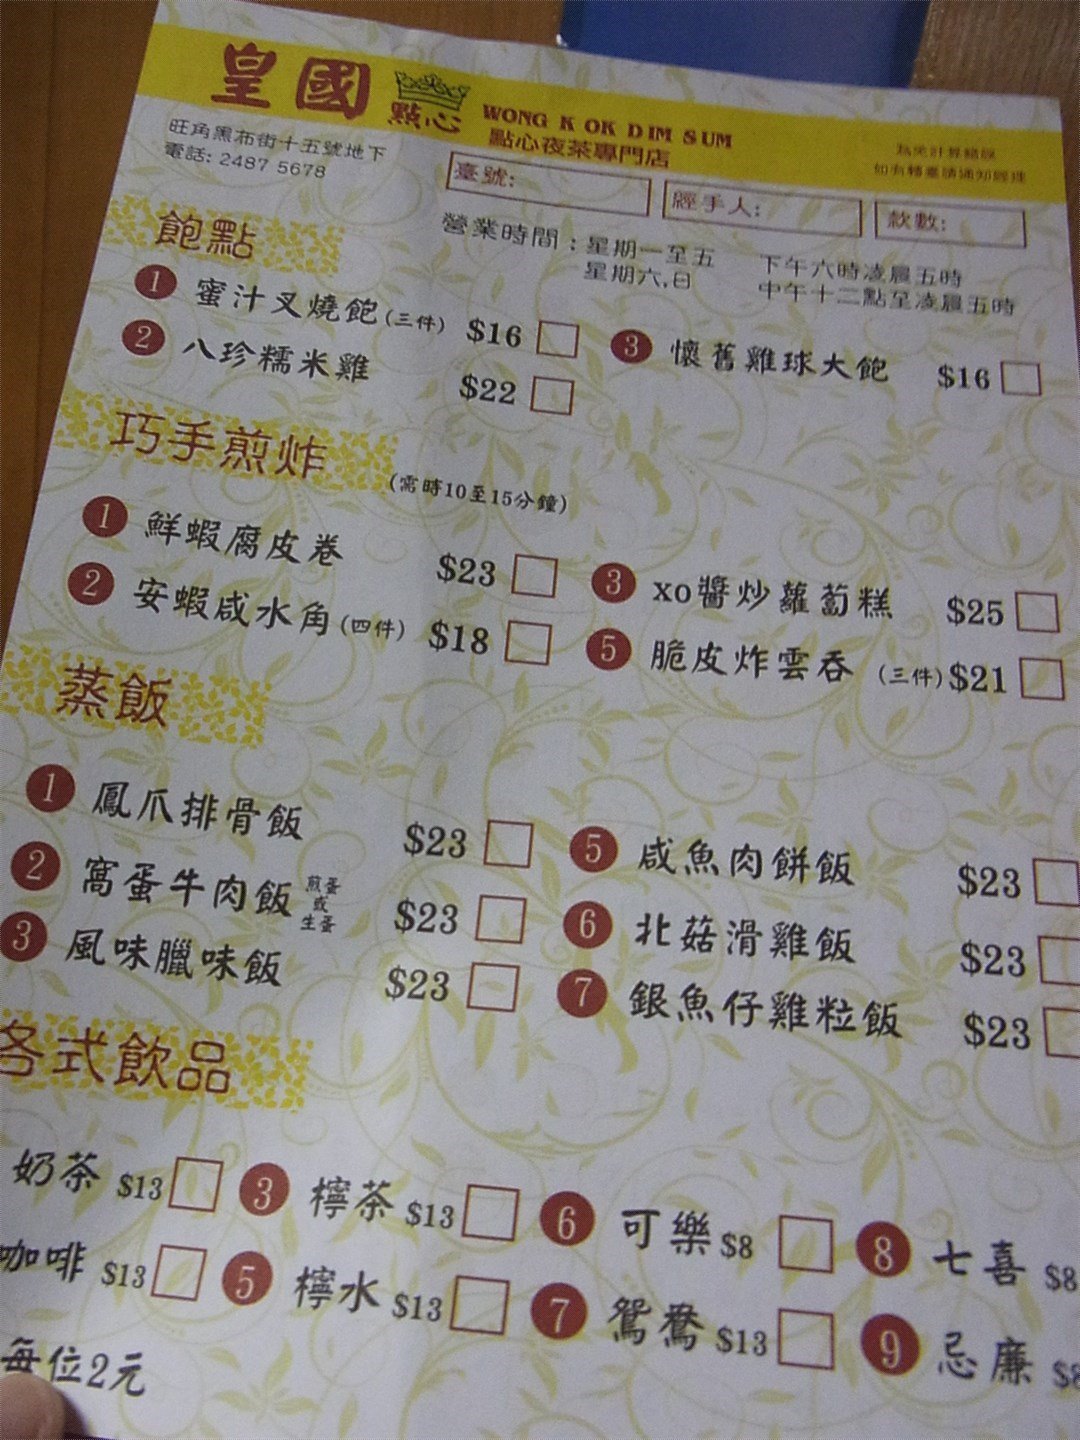 皇國 點心 WONG KOK DIM SUM
點心夜茶專門店
旺角黑布街十五號地下
電話: 2487 5678
如有轉臺請通知經理
臺號: 經手人: 款數:
營業時間：星期一至五 下午六時凌晨五時
星期六,日 中午十二點至凌晨五時
飽點
1 蜜汁叉燒飽(三件) $16
2 八珍糯米雞 $22
3 懷舊雞球大飽 $16
巧手煎炸 (需時10至15分鐘)
1 鮮蝦腐皮卷 $23
2 安蝦咸水角(四件) $18
3 xo醬炒蘿蔔糕 $25
5 脆皮炸雲吞 (三件) $21
蒸飯
1 鳳爪排骨飯 $23
2 窩蛋牛肉飯 煎蛋或生蛋 $23
3 風味臘味飯 $23
5 咸魚肉餅飯 $23
6 北菇滑雞飯 $23
7 銀魚仔雞粒飯 $23
各式飲品
奶茶 $13 3 檸茶 $13 6 可樂 $8 8 七喜 $8
咖啡 $13 5 檸水 $13 7 鴛鴦 $13 9 忌廉 $8
每位2元